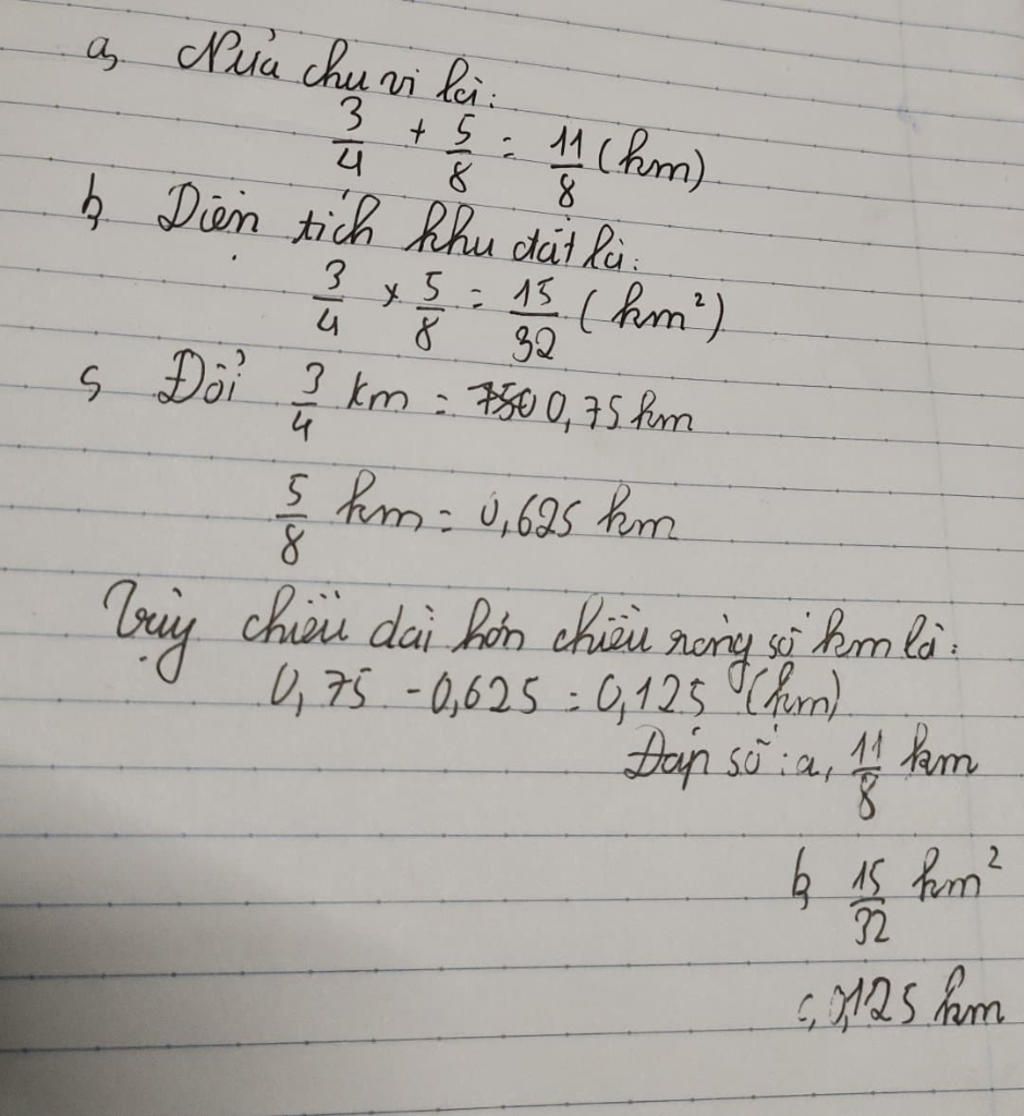 a, Nửa chu vi là:
3/4 + 5/8 = 11/8 (km)
b, Diện tích khu đất là:
3/4 x 5/8 = 15/32 (km²)
c, Đổi 3/4 km = 0,75 km
5/8 km = 0,625 km
Vậy chiều dài hơn chiều rộng số km là:
0,75 - 0,625 = 0,125 (km)
Đáp số: a, 11/8 km
b, 15/32 km²
c, 0,125 km